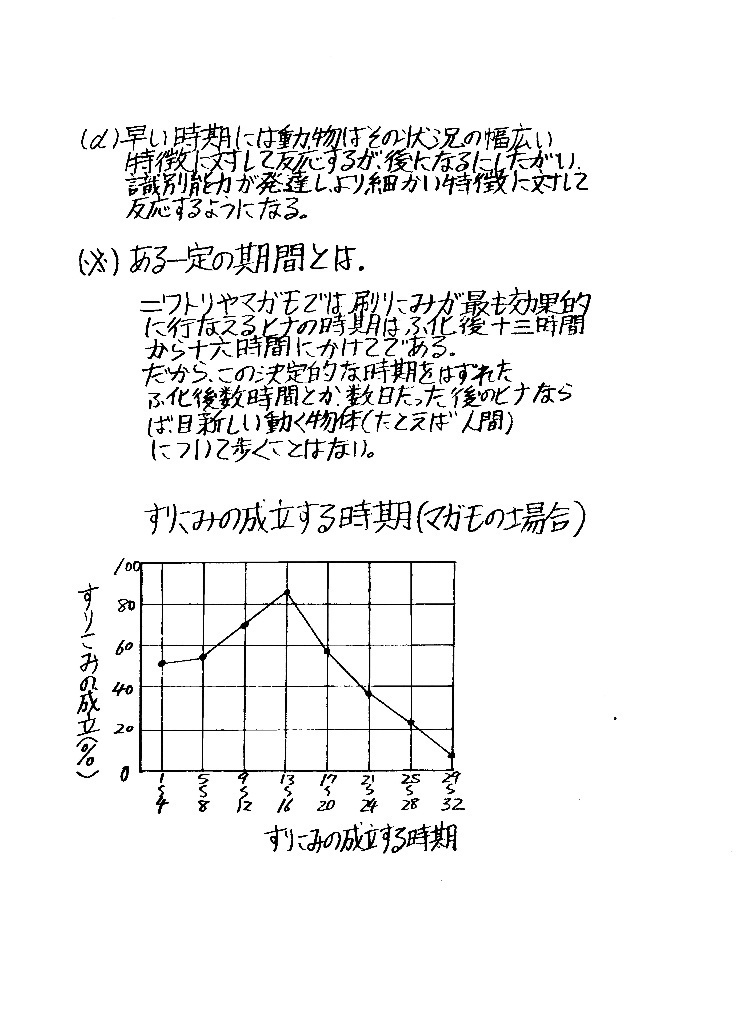 (d)早い時期には動物はその状況の幅広い
特徴に対して反応するが、後になるにしたがい、
識別能力が発達し、より細かい特徴に対して
反応するようになる。
(※)ある一定の期間とは、
ニワトリやマガモでは、刷りこみが最も効果的
に行なえるヒナの時期は、ふ化後十三時間
から十六時間にかけてである。
だから、この決定的な時期をはずれた
ふ化後数時間とか、数日だった後のヒナなら
ば、目新しい動く物体(たとえば人間)
について歩くことはない。
すりこみの成立する時期(マガモの場合)
すりこみの成立(%)
100
80
60
40
20
0
1〜4 5〜8 9〜12 13〜16 17〜20 21〜24 25〜28 29〜32
すりこみの成立する時期